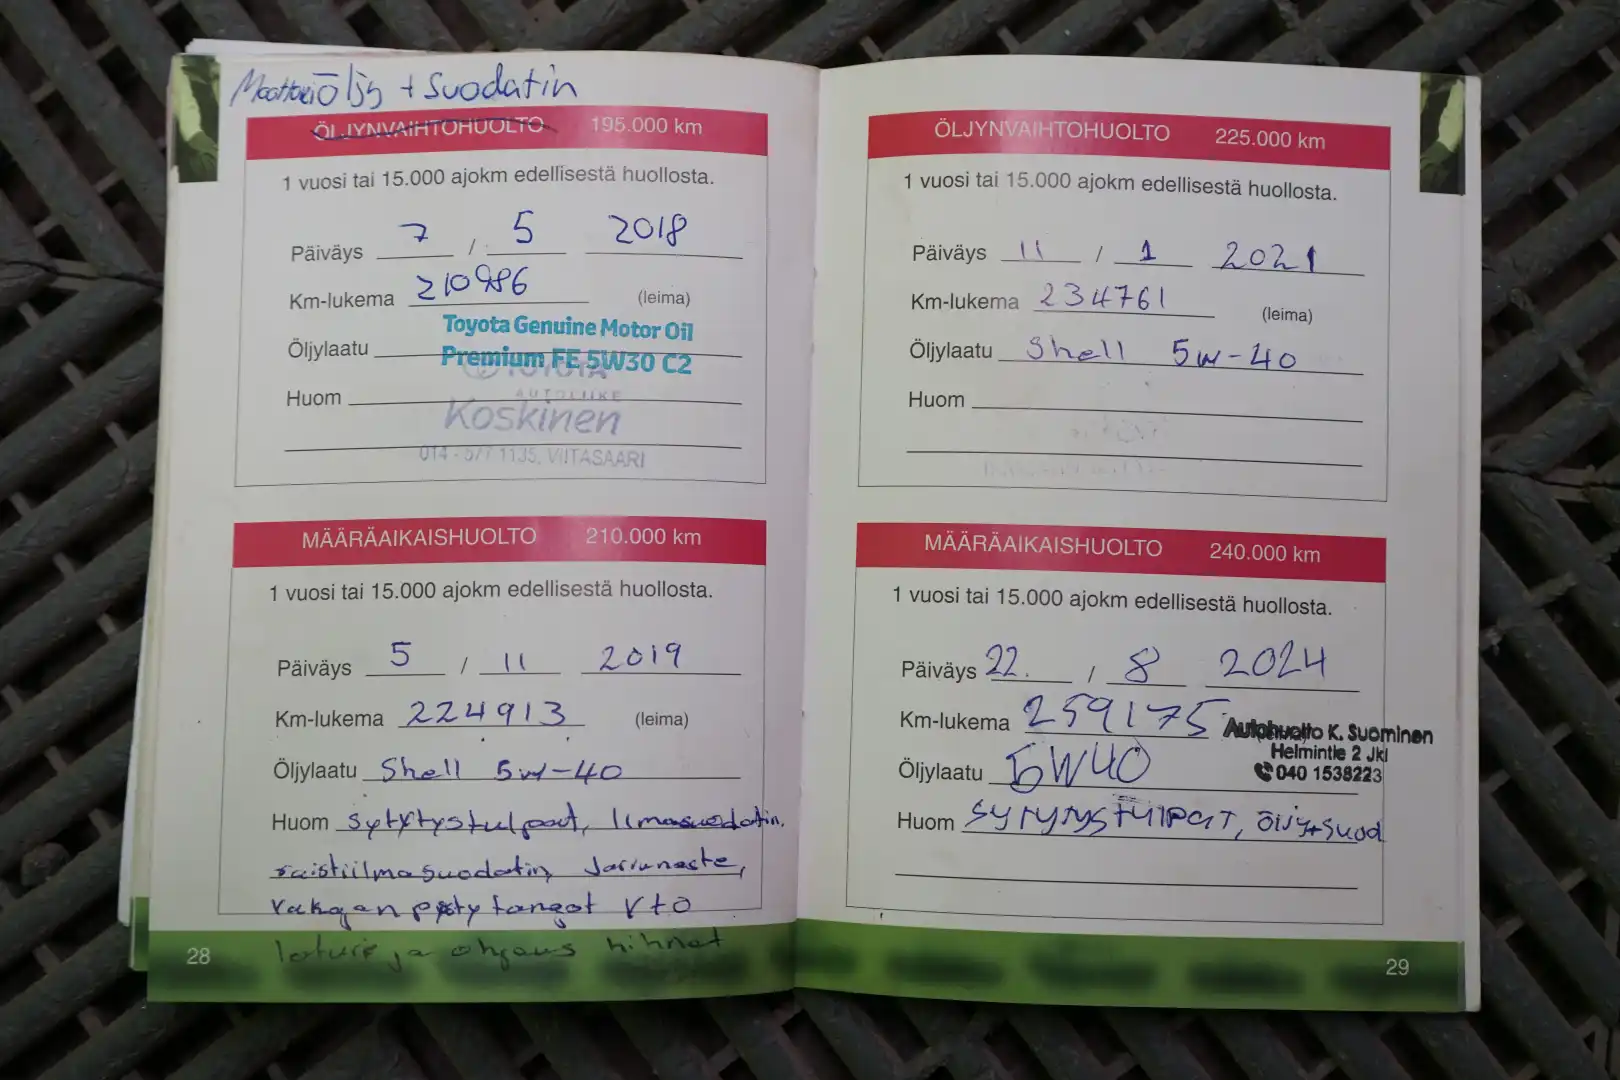 Moottoriöljy + Suodatin
ÖLJYNVAIHTOHUOLTO 195.000 km
1 vuosi tai 15.000 ajokm edellisestä huollosta.
Päiväys 7 / 5 2018
Km-lukema 210986 (leima)
Toyota Genuine Motor Oil
Öljylaatu Premium FE 5W30 C2
TOYOTA
AUTOLIIKE
Huom Koskinen
014 - 577 1135, VIITASAARI
MÄÄRÄAIKAISHUOLTO 210.000 km
1 vuosi tai 15.000 ajokm edellisestä huollosta.
Päiväys 5 / 11 2019
Km-lukema 224913 (leima)
Öljylaatu Shell 5w-40
Huom sytytystulpat, ilmasuodatin,
raistiilmasuodatin, Jarruneste,
Vakaan pysty tangot V+O
laturi ja ohjaus hihnat
28
ÖLJYNVAIHTOHUOLTO 225.000 km
1 vuosi tai 15.000 ajokm edellisestä huollosta.
Päiväys 11 / 1 2021
Km-lukema 234761 (leima)
Öljylaatu Shell 5w-40
Huom
MÄÄRÄAIKAISHUOLTO 240.000 km
1 vuosi tai 15.000 ajokm edellisestä huollosta.
Päiväys 22. / 8 2024
Km-lukema 259175
Autohuolto K. Suominen
Helmintie 2 Jkl
040 1538223
Öljylaatu 5W40
Huom SYTYTYSTULPAT, öljy+suod
29